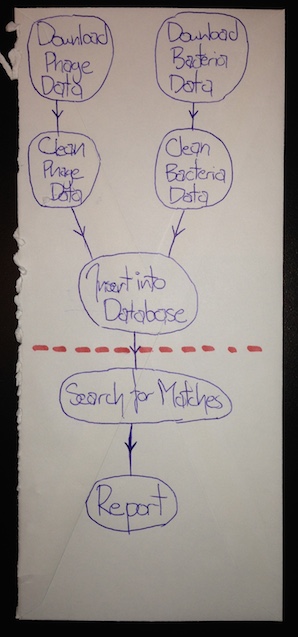 Download
Phage
Data
Download
Bacteria
Data
Clean
Phage
Data
Clean
Bacteria
Data
Insert into
Database
Search for Matches
Report